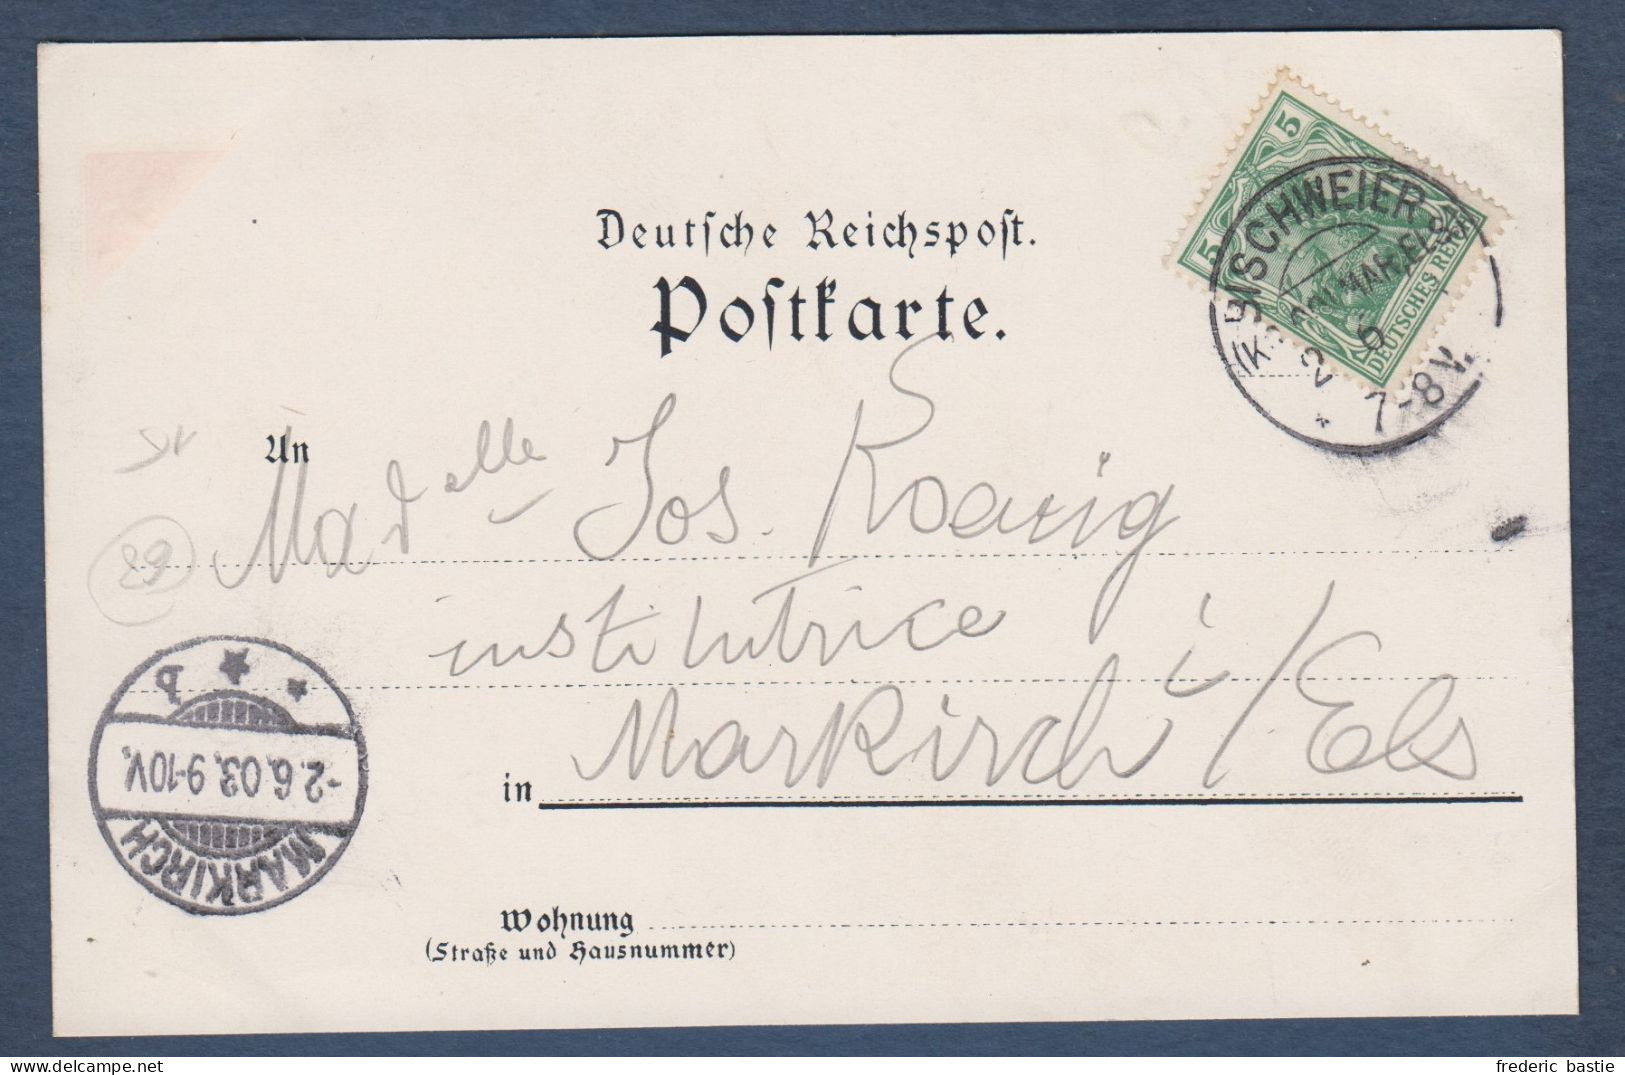 5
5
DEUTSCHES REICH
BISCHWEIER
2 6
7-8V.
Deutsche Reichspost.
Postkarte.
An
Madelle Jos. Koenig
institutrice
in Markirch i/Els
89
P
-2.6.03. 9-10V.
MARKIRCH
Wohnung
(Straße und Hausnummer)
frederic bastie